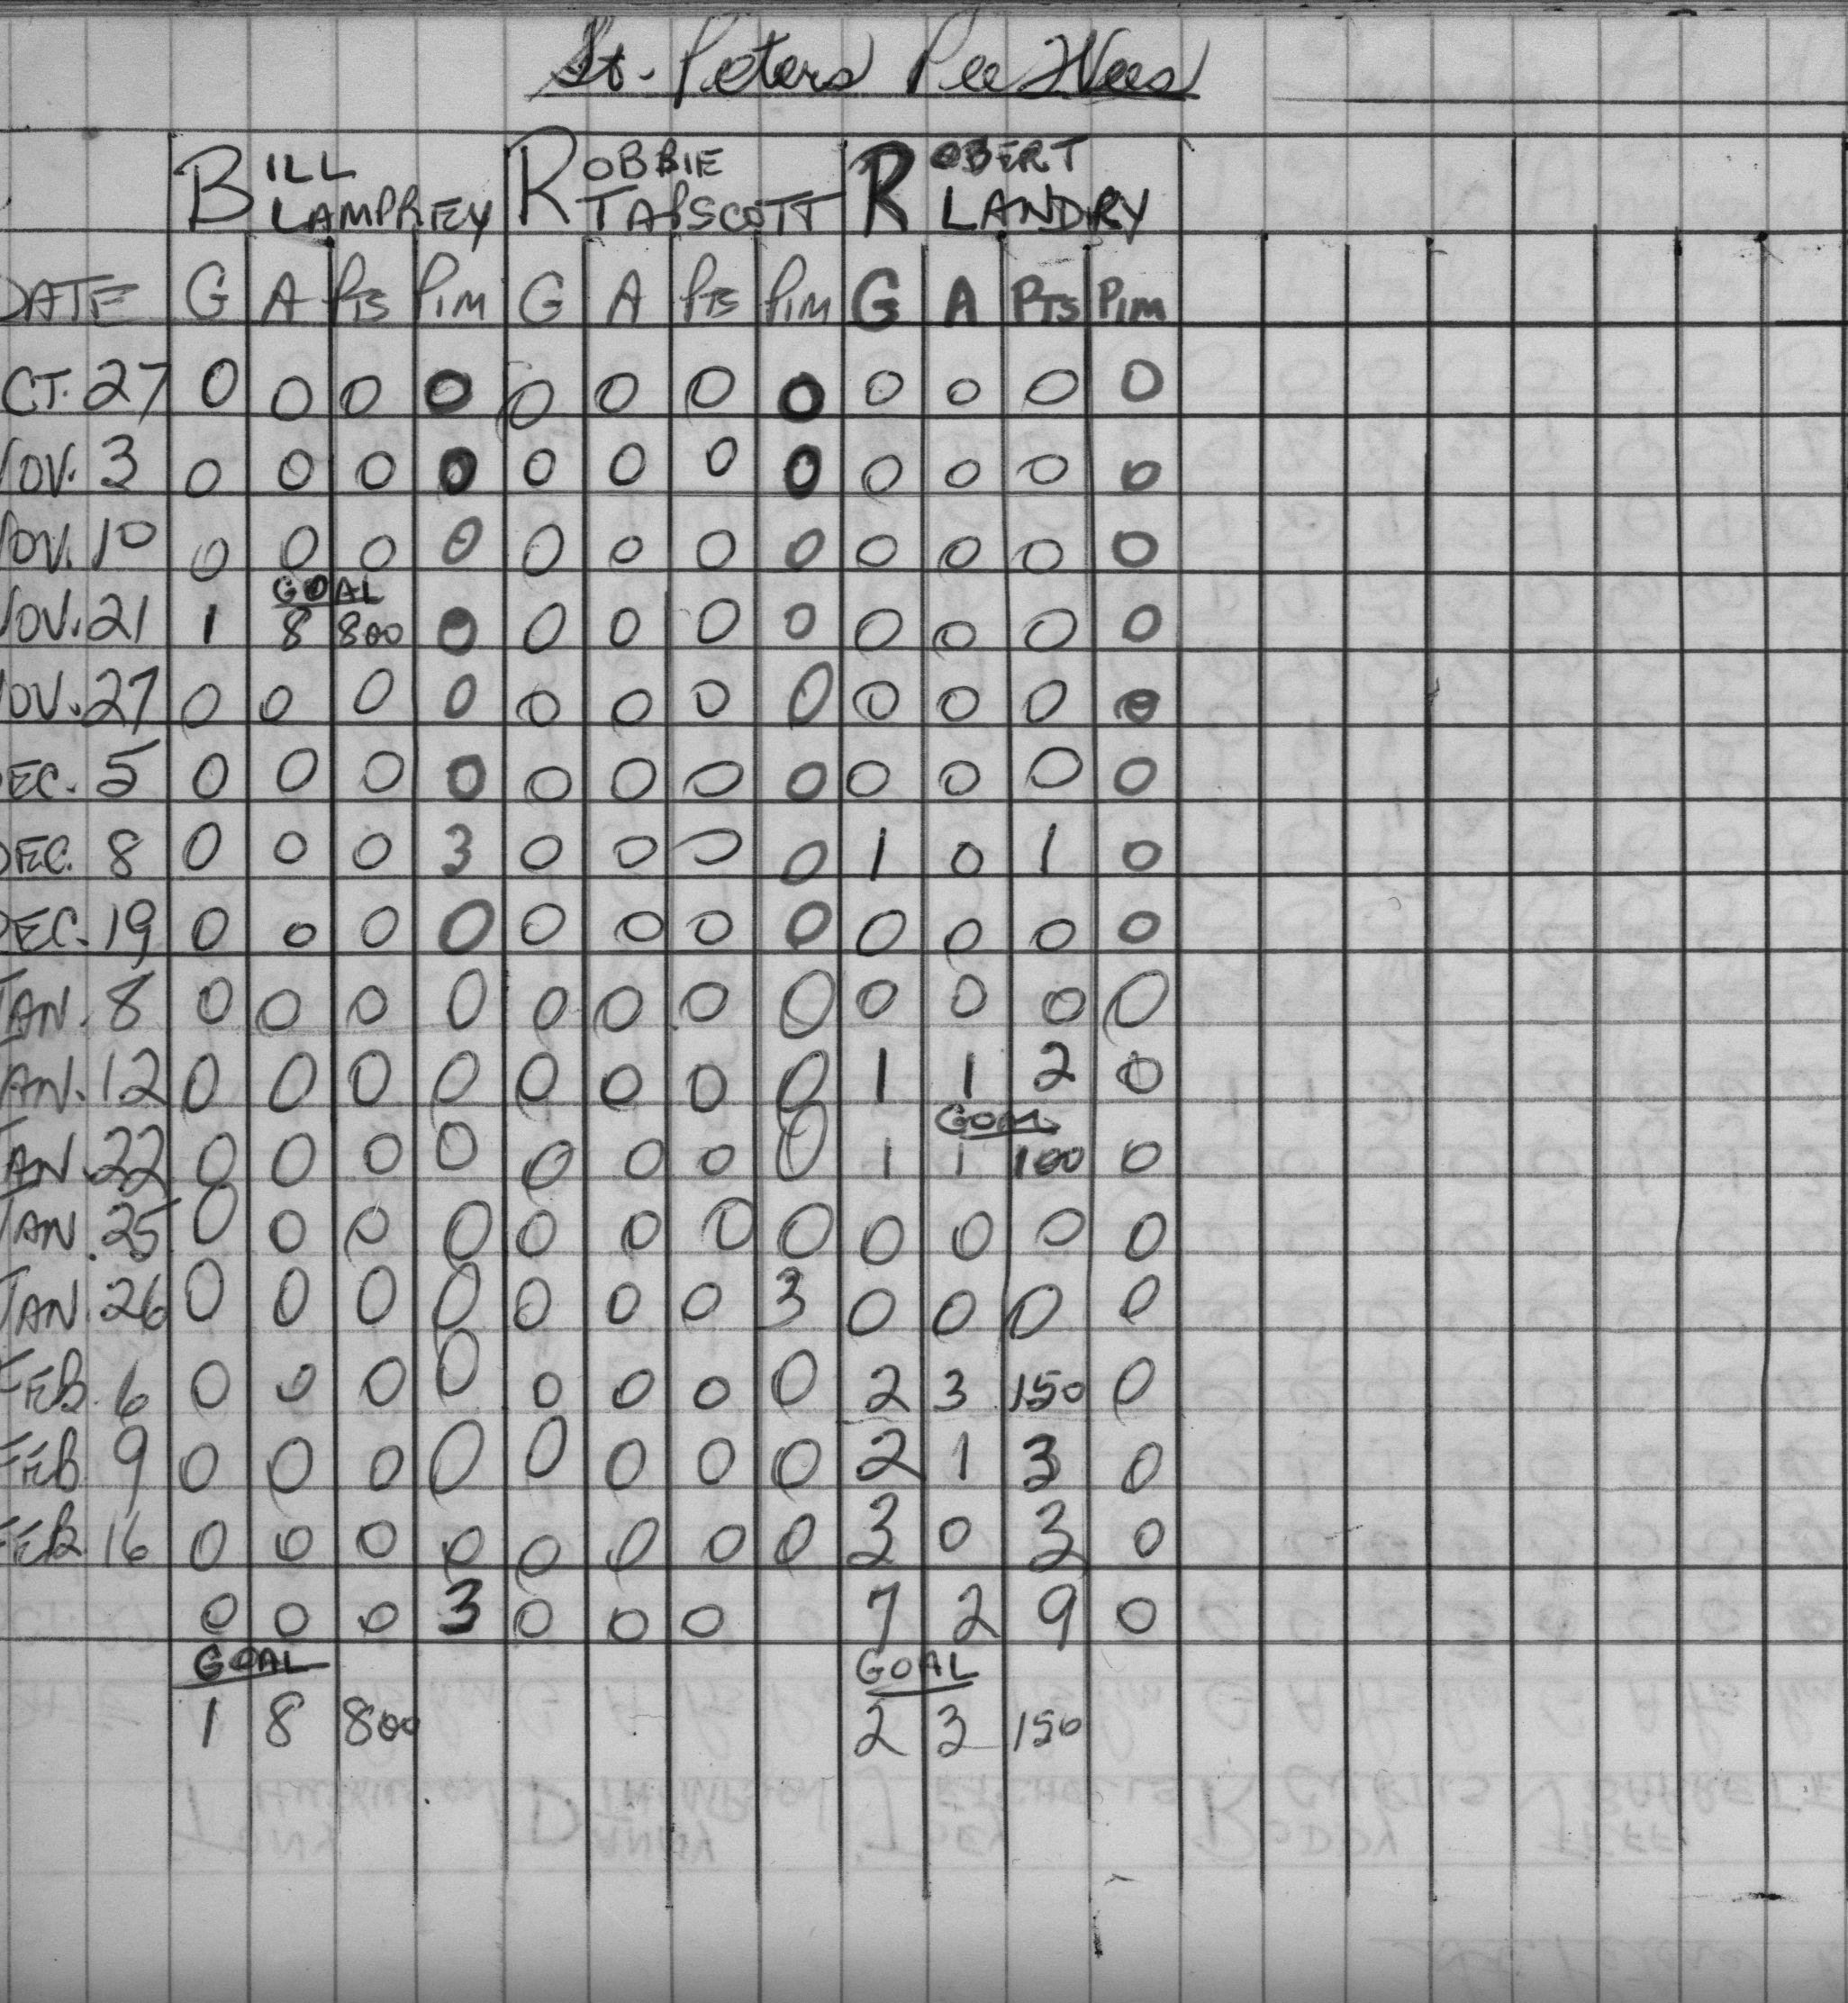 St. Peters Pee Wees
BILL LAMPREY ROBBIE TAPSCOTT ROBERT LANDRY
DATE G A PTS PIM G A PTS PIM G A PTS PIM
CT. 27 0 0 0 0 0 0 0 0 0 0 0 0
NOV. 3 0 0 0 0 0 0 0 0 0 0 0 0
NOV. 10 0 0 0 0 0 0 0 0 0 0 0 0
GOAL
NOV. 21 1 8 800 0 0 0 0 0 0 0 0 0
NOV. 27 0 0 0 0 0 0 0 0 0 0 0 0
DEC. 5 0 0 0 0 0 0 0 0 0 0 0 0
DEC. 8 0 0 0 3 0 0 0 0 1 0 1 0
DEC. 19 0 0 0 0 0 0 0 0 0 0 0 0
JAN. 8 0 0 0 0 0 0 0 0 0 0 0 0
JAN. 12 0 0 0 0 0 0 0 0 1 1 2 0
GOAL
JAN. 22 0 0 0 0 0 0 0 0 1 1 100 0
JAN. 25 0 0 0 0 0 0 0 0 0 0 0 0
JAN. 26 0 0 0 0 0 0 0 3 0 0 0 0
FEB. 6 0 0 0 0 0 0 0 0 2 3 150 0
FEB. 9 0 0 0 0 0 0 0 0 2 1 3 0
FEB. 16 0 0 0 0 0 0 0 0 3 0 3 0
0 0 0 3 0 0 0 7 2 9 0
GOAL GOAL
1 8 800 2 3 150